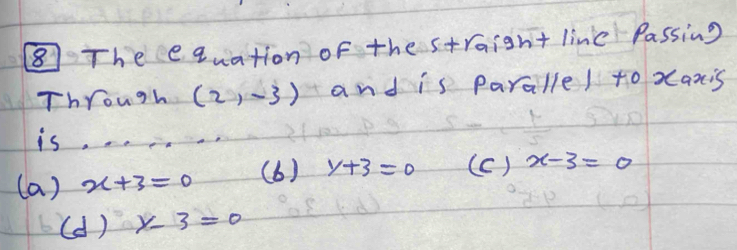 8 The equation of the straight line Passing
Through (2,-3) and is Parallel to x axis
is ........
(a) x+3=0 (b) y+3=0 (c) x-3=0
(d) y-3=0